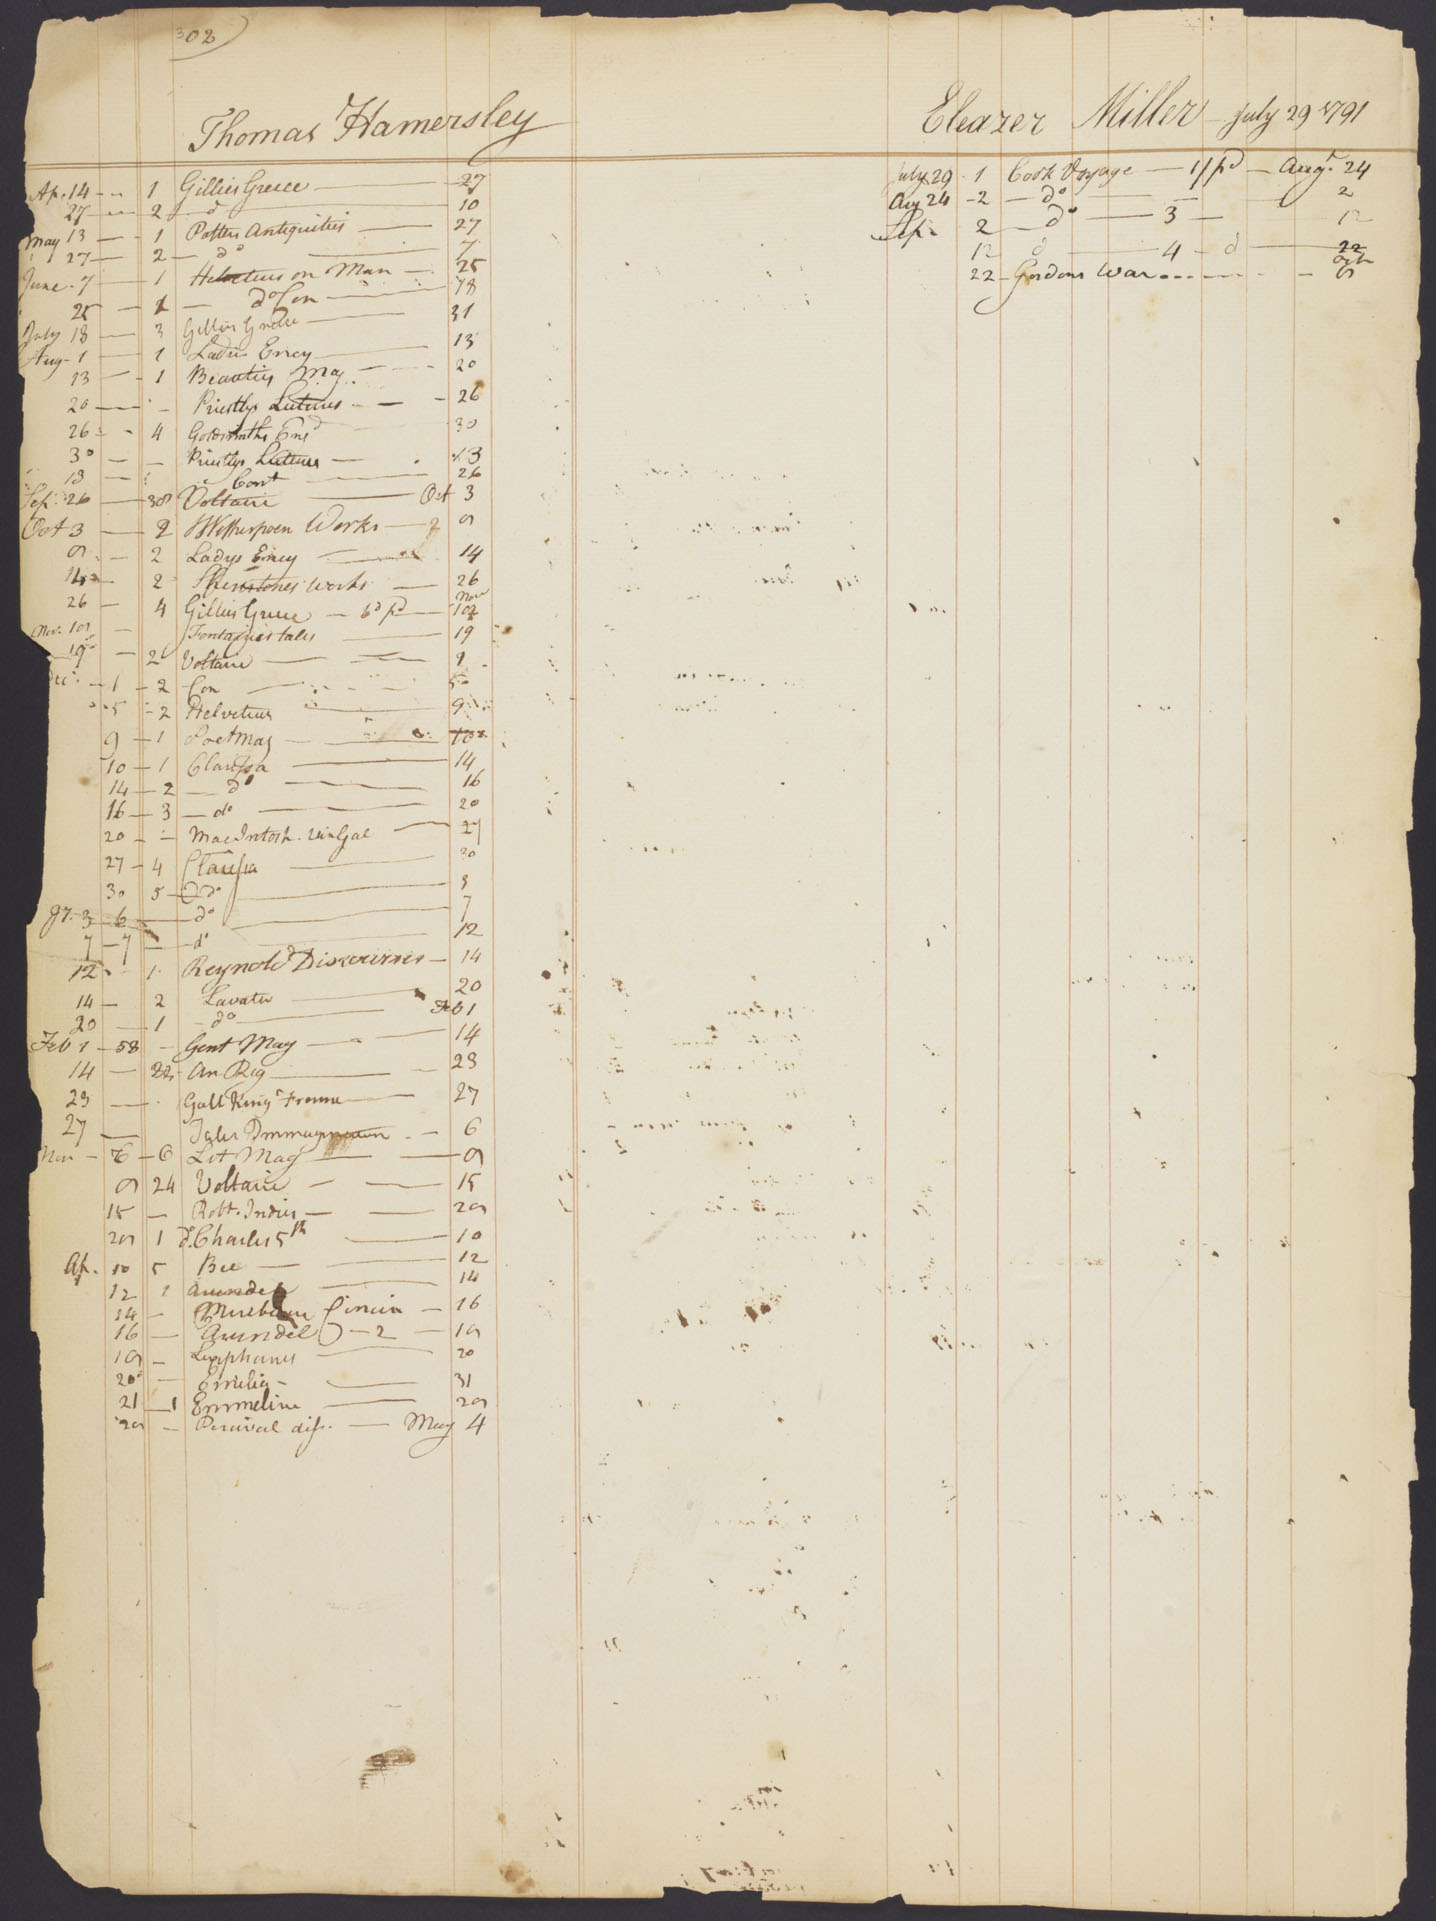 302
Thomas Hamersley
Ap. 14 - 1 Gillies Greece - 27
27 - 2 - do - 10
May 13 - 1 Potters Antiquities - 27
27 - 2 - do - 7
June 7 - 1 Helvetius on Man - 25
25 - 1 - do Con - 18
July 18 - 3 Gillies Greece - 31
Aug 1 - 1 Ladies Ency - 13
13 - 1 Beauties Mag - 20
20 - Priestlys Lectures - 26
26 - 4 Goldsmiths Engd - 30
30 - Priestlys Lectures - 13
13 - Cont - 26
Sep. 26 - 38 Voltaire - Oct 3
Oct 3 - 2 Wetherspoen Works - 2 9
9 - 2 Ladys Ency - 14
14 - 2 Shenstones works - 26
26 - 4 Gillies Greece - 6d pd - Nov 10
Nov. 10 - Fontaines tales - 19
19 - 2 Voltaire - 1
Dec. - 1 - 2 Con - 5
5 - 2 Helvetius - 9
9 - 1 Poet Mag - 10
10 - 1 Clarissa - 14
14 - 2 - do - 16
16 - 3 - do - 20
20 - MacIntosh - 27
27 - 4 Clarissa - 30
30 5 - do - 3
3 - 6 - do - 7
7 - 7 - do - 12
12 - 1 Reynolds Discourses - 14
14 - 2 Lavater - 20
20 - 1 - do - Feb 1
Feb 1 - 58 - Gent Mag - 14
14 - 22 - An Reg - 23
23 - Gall Kings France - 27
27 - Tales - 6
6 - 6 Lit Mag - 9
9 24 Voltaire - 15
15 - Robt. Indies - 29
29 1 do. Charles 5th - 10
Ap. 10 5 Bee - 12
12 1 Arundel - 14
14 - 16
16 - Arundel - 2 - 19
19 - Lexphanes - 20
20 - Emilia - 31
21 - 1 Emmeline - 29
29 - Percival diss. - May 4
Eleazer Miller - July 29 1791
July 29 - 1 Cook Voyage - 1/ pd - Augt. 24
Aug 24 - 2 - do - 2
Sep. 2 - do - 3 - 12
12 d - 4 - d - 22
22 - Gordons War - Octr 6